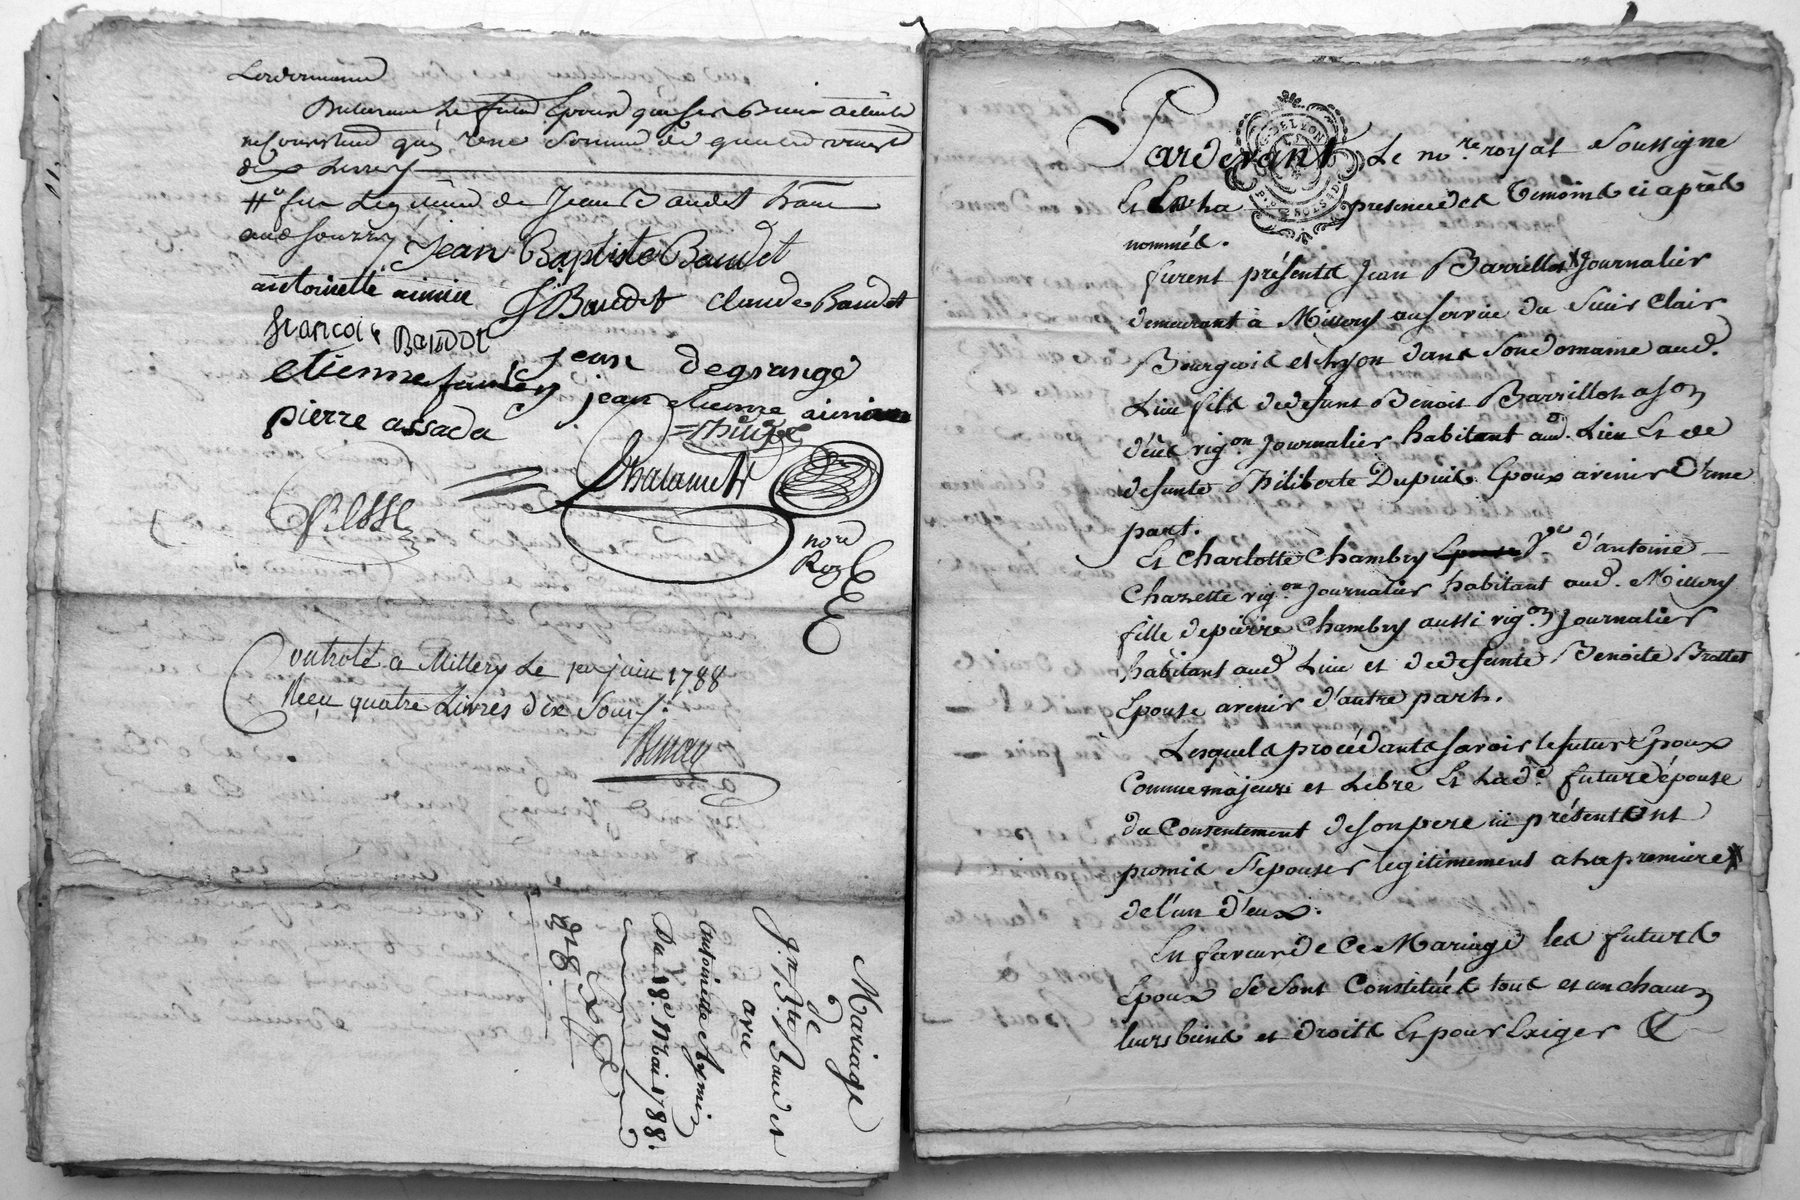 Declarant le futur Epoux que ses Biens actuels
ne consistent qu'en une somme de quatre vingt
dix Livres
# fils Legitime de Jean Baudet
Jean Baptiste Baudet
antoinette aimin J Baudet Claude Baudet
francois Baudet
jean degrange
etienne
jean etienne aimin
pierre assada
nore
Roy
Controlé a Millery Le 1er juin 1788
Reçu quatre Livres dix Sous
Mariage
de
J.n B.te Baudet
avec
Antoinette Aymin
Du 18.e Mai 1788.
Pardevant Le no.re royal Soussigné
Et En La presence des Temoins ci après
nommés.
furent présents Jean Barrillon Journalier
demeurant à Millery au service du Sieur Clair
Bourgeois de Lyon dans son domaine aud.
Lieu fils de defunt Benoit Barrillon a son
décès vig.on Journalier habitant aud. Lieu Et de
defunte Philiberte Dupuis Epoux avenir D'une
part.
Et Charlotte Chambry V.ve d'antoine
Chazette vig.on Journalier habitant aud. Millery
fille de pierre Chambry aussi vig.on Journalier
habitant aud. Lieu et de defunte Benoite Brottet
Epouse avenir d'autre part.
Lesquels procédants savoir le futur Epoux
Comme majeur et Libre Et Lad.e future épouse
du Consentement de son pere ici présent Ont
promis s'epouser legitimement a La premiere
de l'un d'eux.
En faveur de Ce Mariage les futurs
Epoux se sont Constitués tous et un chacun
leurs biens et droits Et pour Exiger